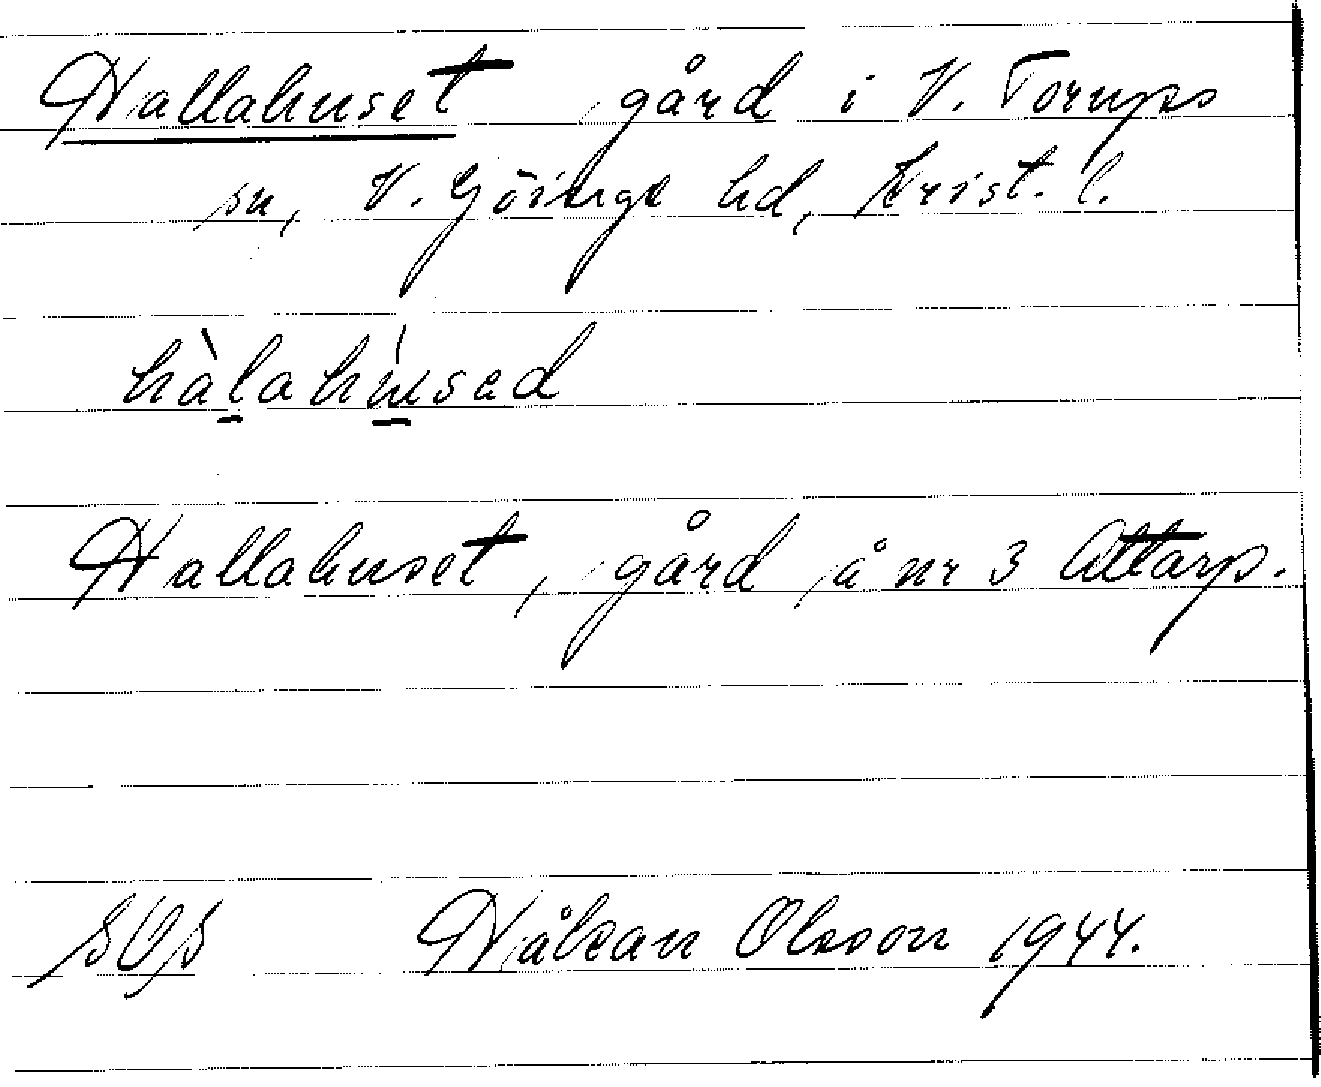 Hallahuset, gård i V. Torups
sn, V. Göinge hd, Krist. l.
hàl̠ahú̠sad
Hallahuset, gård å nr 3 Attarp.
Håkan Olsson 1944.